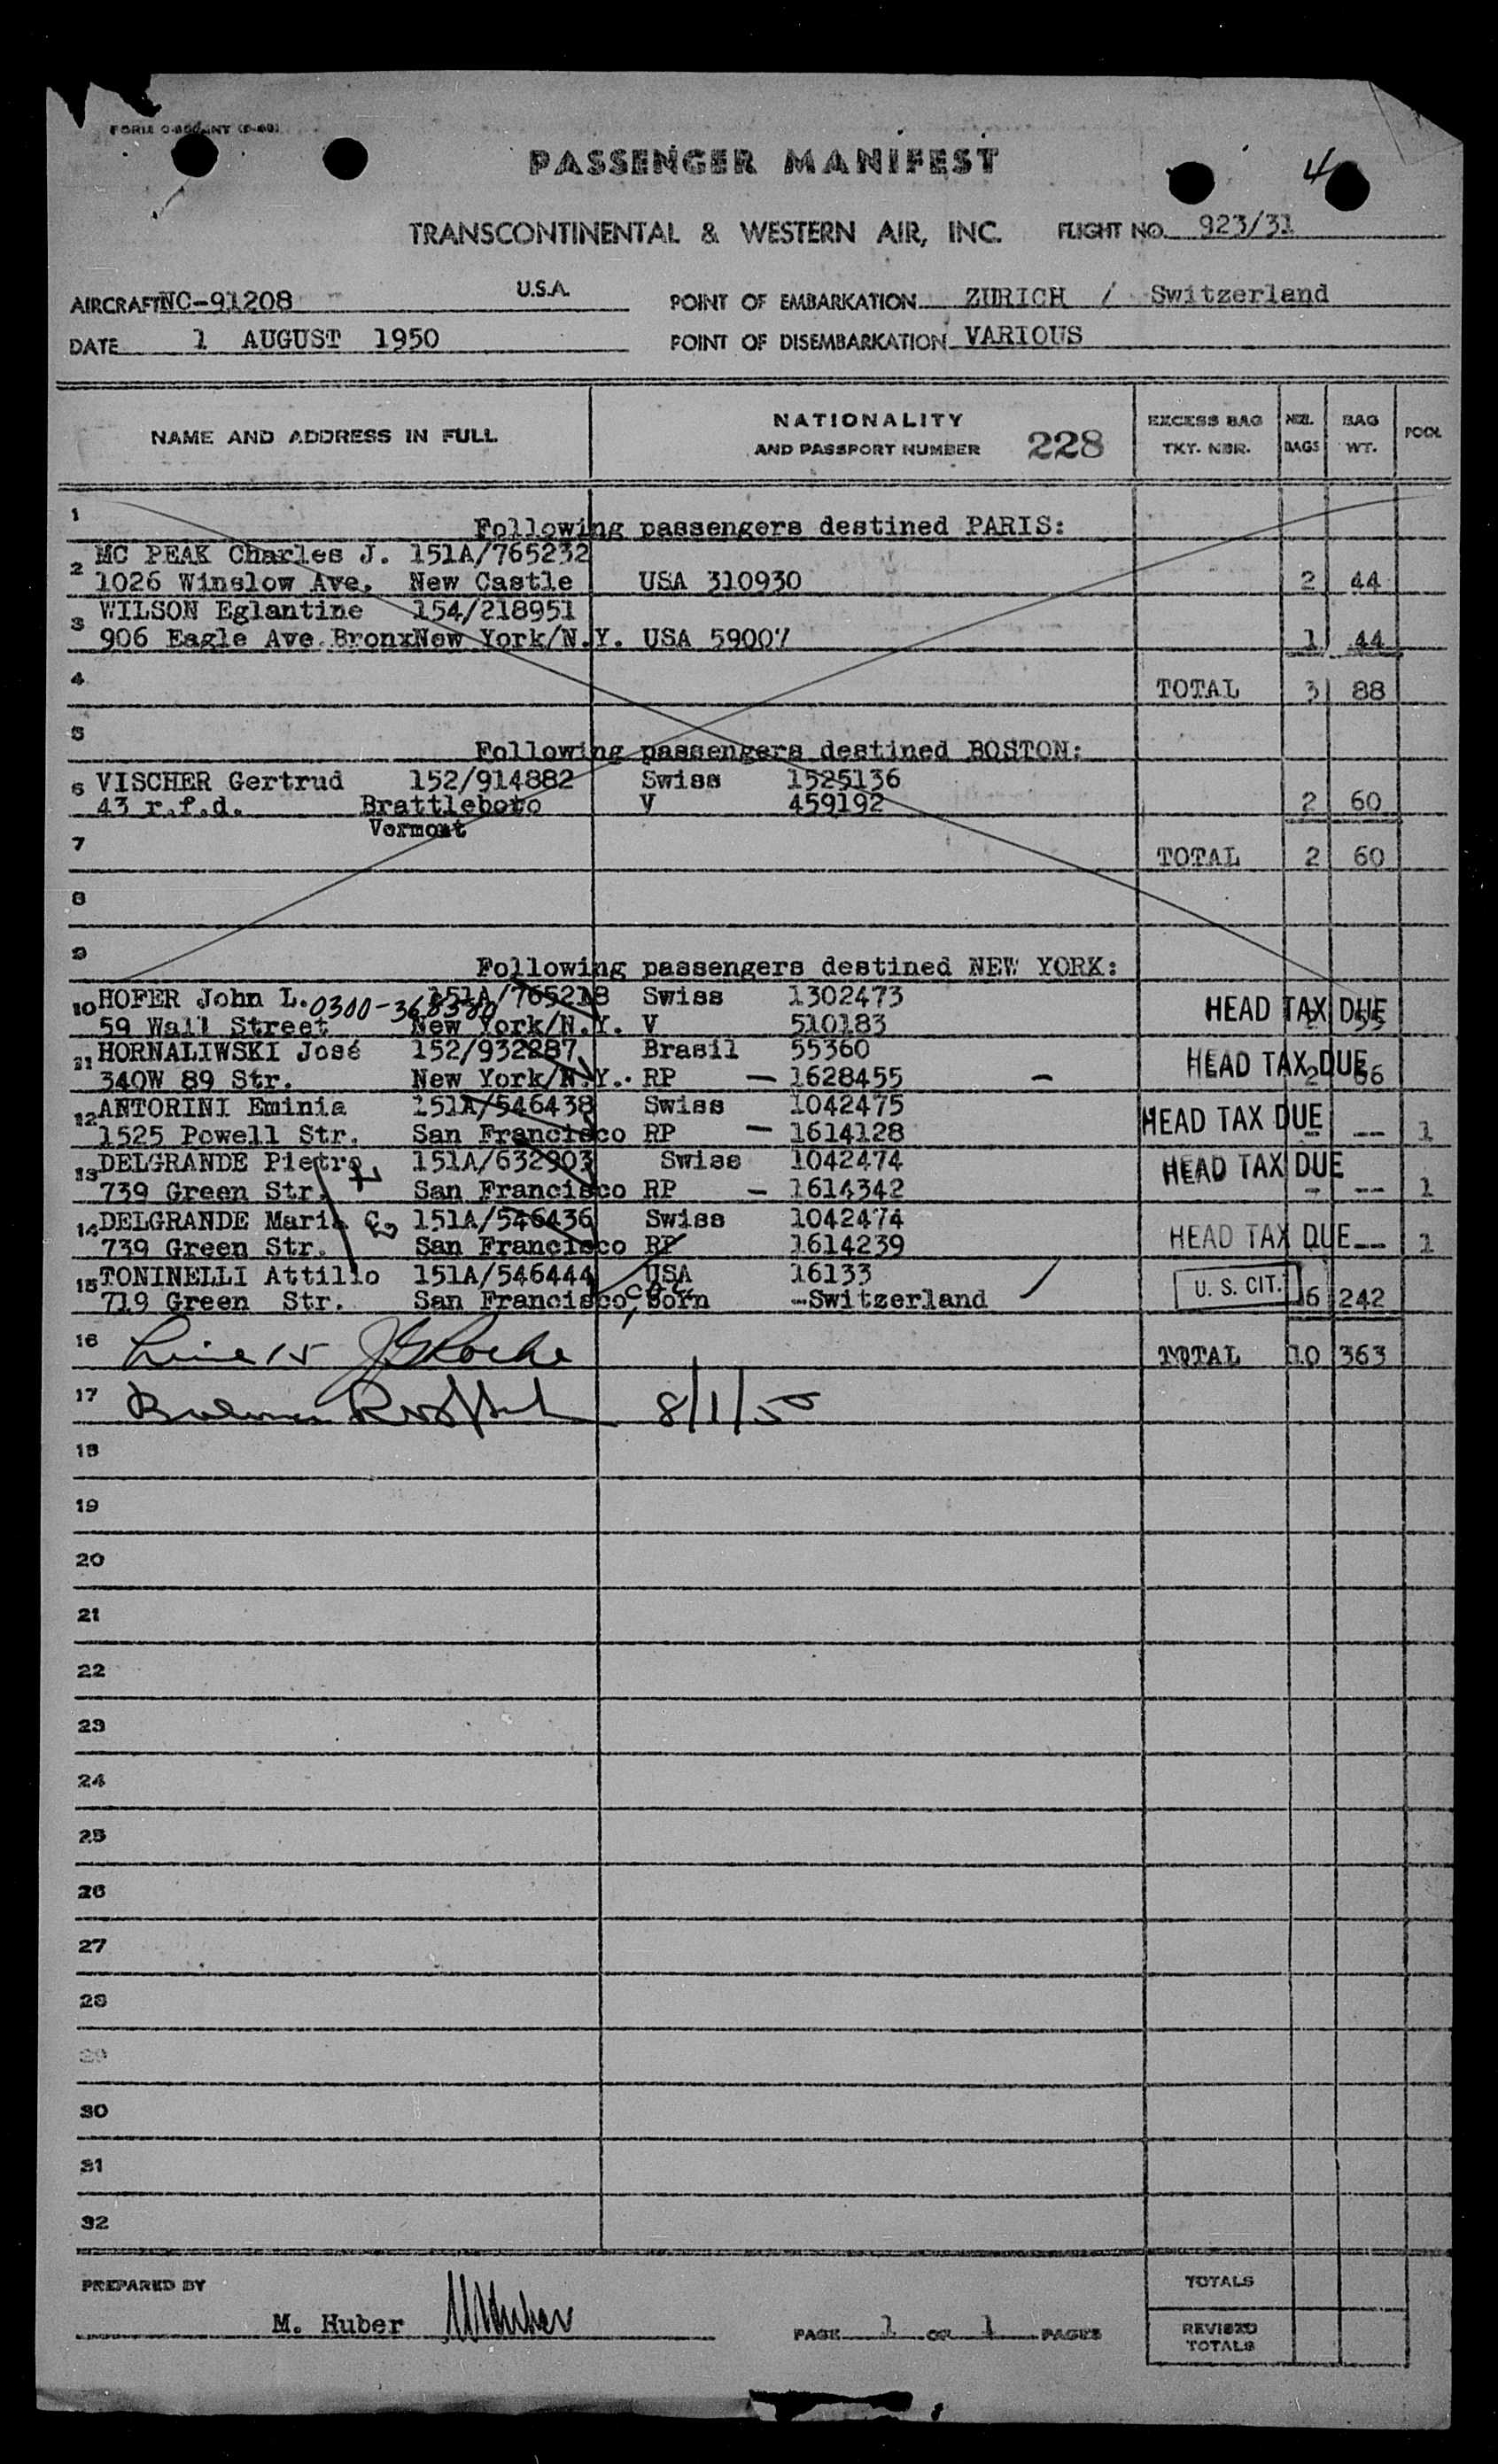 FORM O-850-INT
PASSENGER MANIFEST
4
TRANSCONTINENTAL & WESTERN AIR, INC. FLIGHT NO. 923/31
AIRCRAFT NC-91208 U.S.A. POINT OF EMBARKATION ZURICH / Switzerland
DATE 1 AUGUST 1950 POINT OF DISEMBARKATION VARIOUS
NAME AND ADDRESS IN FULL NATIONALITY AND PASSPORT NUMBER 228 EXCESS BAG TKT. NBR. NBR. BAGS BAG WT. POOL
1 Following passengers destined PARIS:
2 MC PEAK Charles J. 151A/765232
1026 Winslow Ave. New Castle USA 310930 2 44
3 WILSON Eglantine 154/218951
906 Eagle Ave. Bronx New York/N.Y. USA 59007 1 44
4 TOTAL 3 88
5 Following passengers destined BOSTON:
6 VISCHER Gertrud 152/914882 Swiss 1525136
43 r.f.d. Brattleboro V 459192 2 60
Vermont
7 TOTAL 2 60
8
9 Following passengers destined NEW YORK:
10 HOFER John L. 0300-368380 151A/765218 Swiss 1302473 HEAD TAX DUE
59 Wall Street New York/N.Y. V 510183 2 55
11 HORNALIWSKI José 152/932287 Brasil 55360 HEAD TAX DUE
340W 89 Str. New York/N.Y. RP — 1628455 — 2 66
12 ANTORINI Eminia 151A/546438 Swiss 1042475 HEAD TAX DUE
1525 Powell Str. San Francisco RP — 1614128 - -- 1
13 DELGRANDE Pietro 151A/632903 Swiss 1042474 HEAD TAX DUE
739 Green Str. San Francisco RP — 1614342 - -- 1
14 DELGRANDE Maria C. 151A/546436 Swiss 1042474 HEAD TAX DUE
739 Green Str. San Francisco RP 1614239 -- 1
15 TONINELLI Attillo 151A/546444 USA 16133 U. S. CIT.
719 Green Str. San Francisco, Born -Switzerland 6 242
16 Line 15 TOTAL 10 363
17 8/1/50
18
19
20
21
22
23
24
25
26
27
28
29
30
31
32
PREPARED BY TOTALS
M. Huber MHuber PAGE 1 OF 1 PAGES REVISED TOTALS